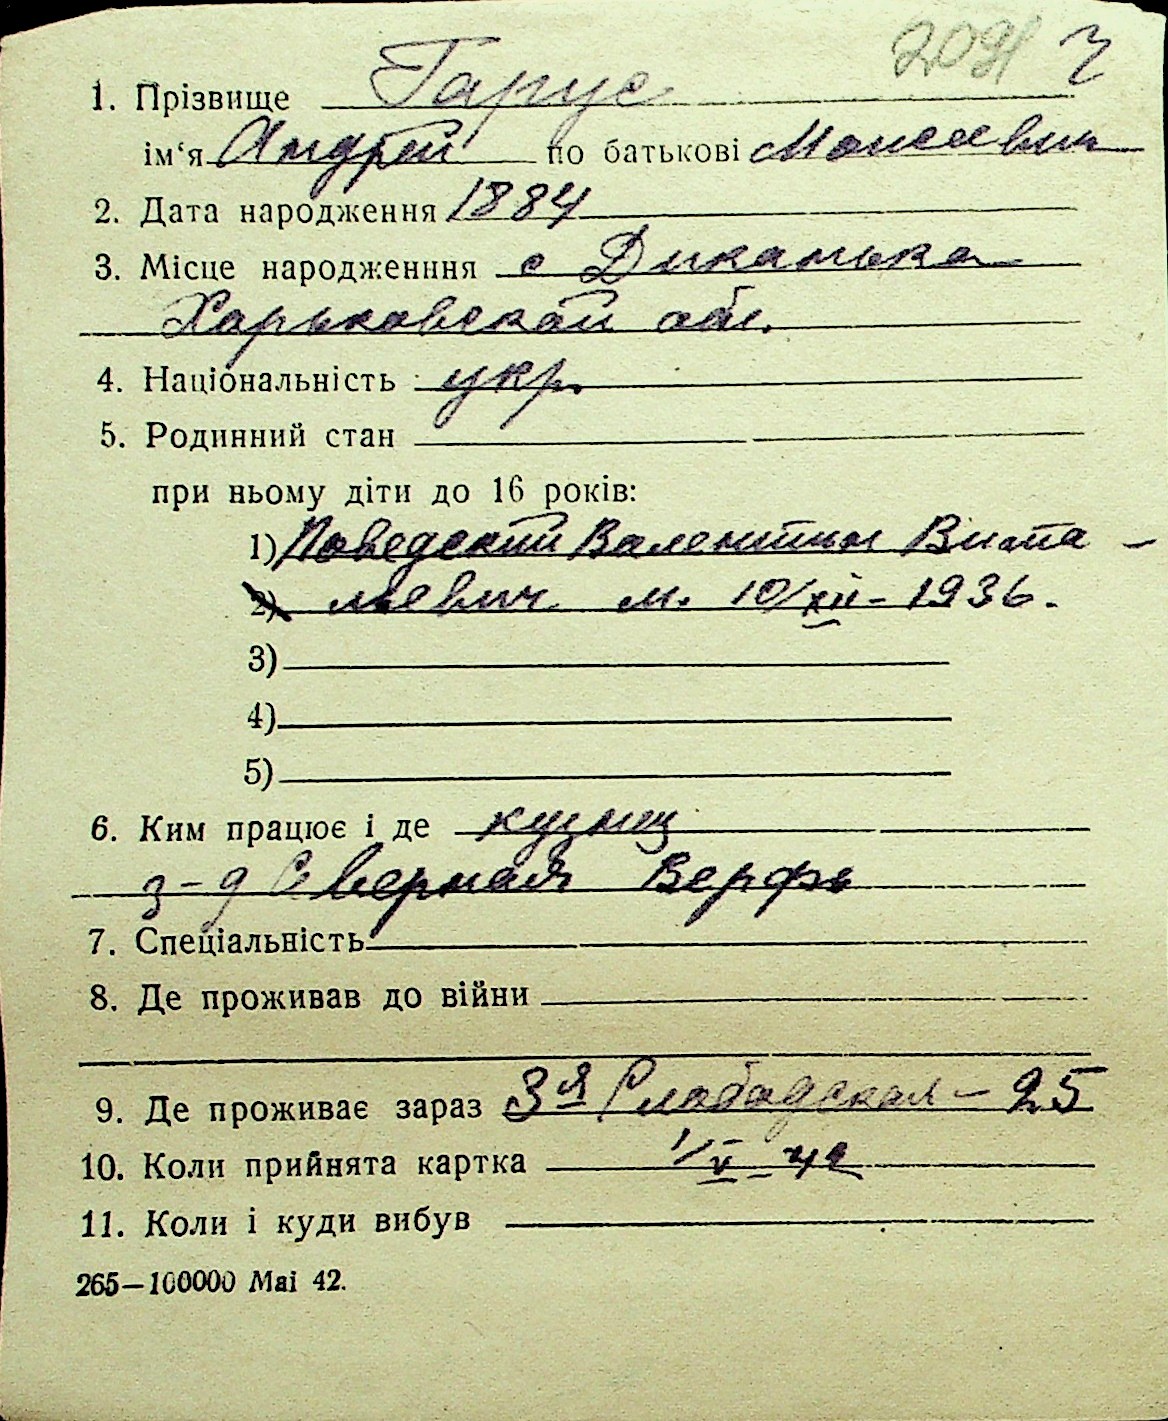 2091 ч
1. Прізвище Гарус
ім‘я Андрей по батькові Моисеевич
2. Дата народження 1884
3. Місце народженння с Диканька
Харьковской обл.
4. Національність укр.
5. Родинний стан
при ньому діти до 16 років:
1) Поведский Валентин Вита-
2) льевич м. 10/XII - 1936.
3)
4)
5)
6. Ким працює і де кузнец
з-д Северная Верфь
7. Спеціальність
8. Де проживав до війни
9. Де проживає зараз 3я Слободская - 25
10. Коли прийнята картка 1/V - 42
11. Коли і куди вибув
265—100000 Mai 42.